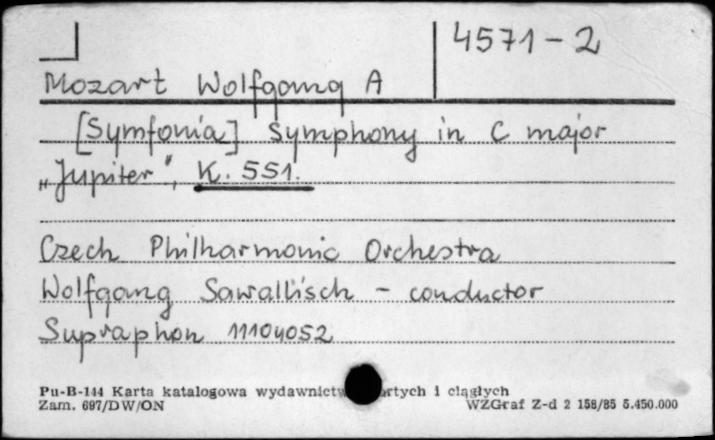 4571-2
Mozart Wolfgang A
[Symfonia] Symphony in C major
„Jupiter”, K. 551.
Czech Philharmonic Orchestra
Wolfgang Sawallisch - conductor
Supraphon 11104052
Pu-B-144 Karta katalogowa wydawnictw rtych i ciągłych
Zam. 697/DW/ON WZGraf Z-d 2 158/85 5.450.000